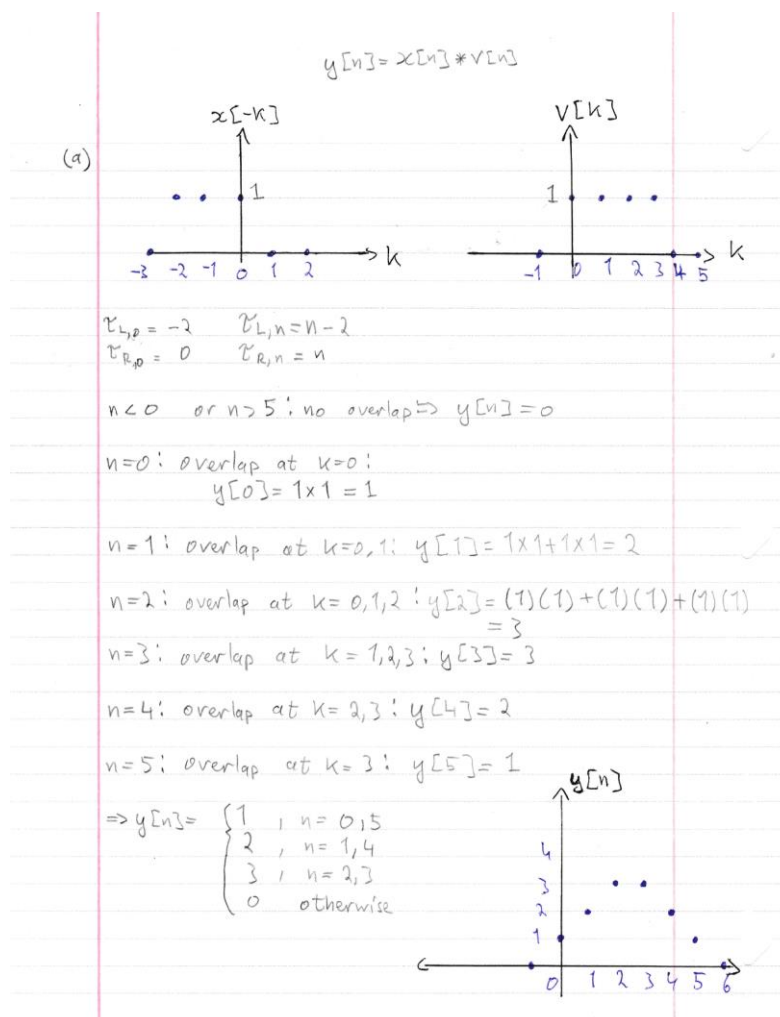 y[n]= x[n] * v[n]
(a)
x[-k]
1
k
-3 -2 -1 0 1 2
v[k]
1
k
-1 0 1 2 3 4 5
τL,0 = -2 τL,n = n-2
τR,0 = 0 τR,n = n
n<0 or n>5 : no overlap => y[n] = 0
n=0: overlap at k=0:
y[0]= 1×1 = 1
n=1: overlap at k=0,1: y[1]= 1×1+1×1= 2
n=2: overlap at k= 0,1,2 : y[2]= (1)(1)+(1)(1)+(1)(1)
= 3
n=3: overlap at k= 1,2,3: y[3]= 3
n=4: overlap at k= 2,3: y[4]= 2
n=5: overlap at k= 3: y[5]= 1
=> y[n]= { 1 , n= 0,5
2 , n= 1,4
3 , n= 2,3
0 otherwise
y[n]
4
3
2
1
0 1 2 3 4 5 6